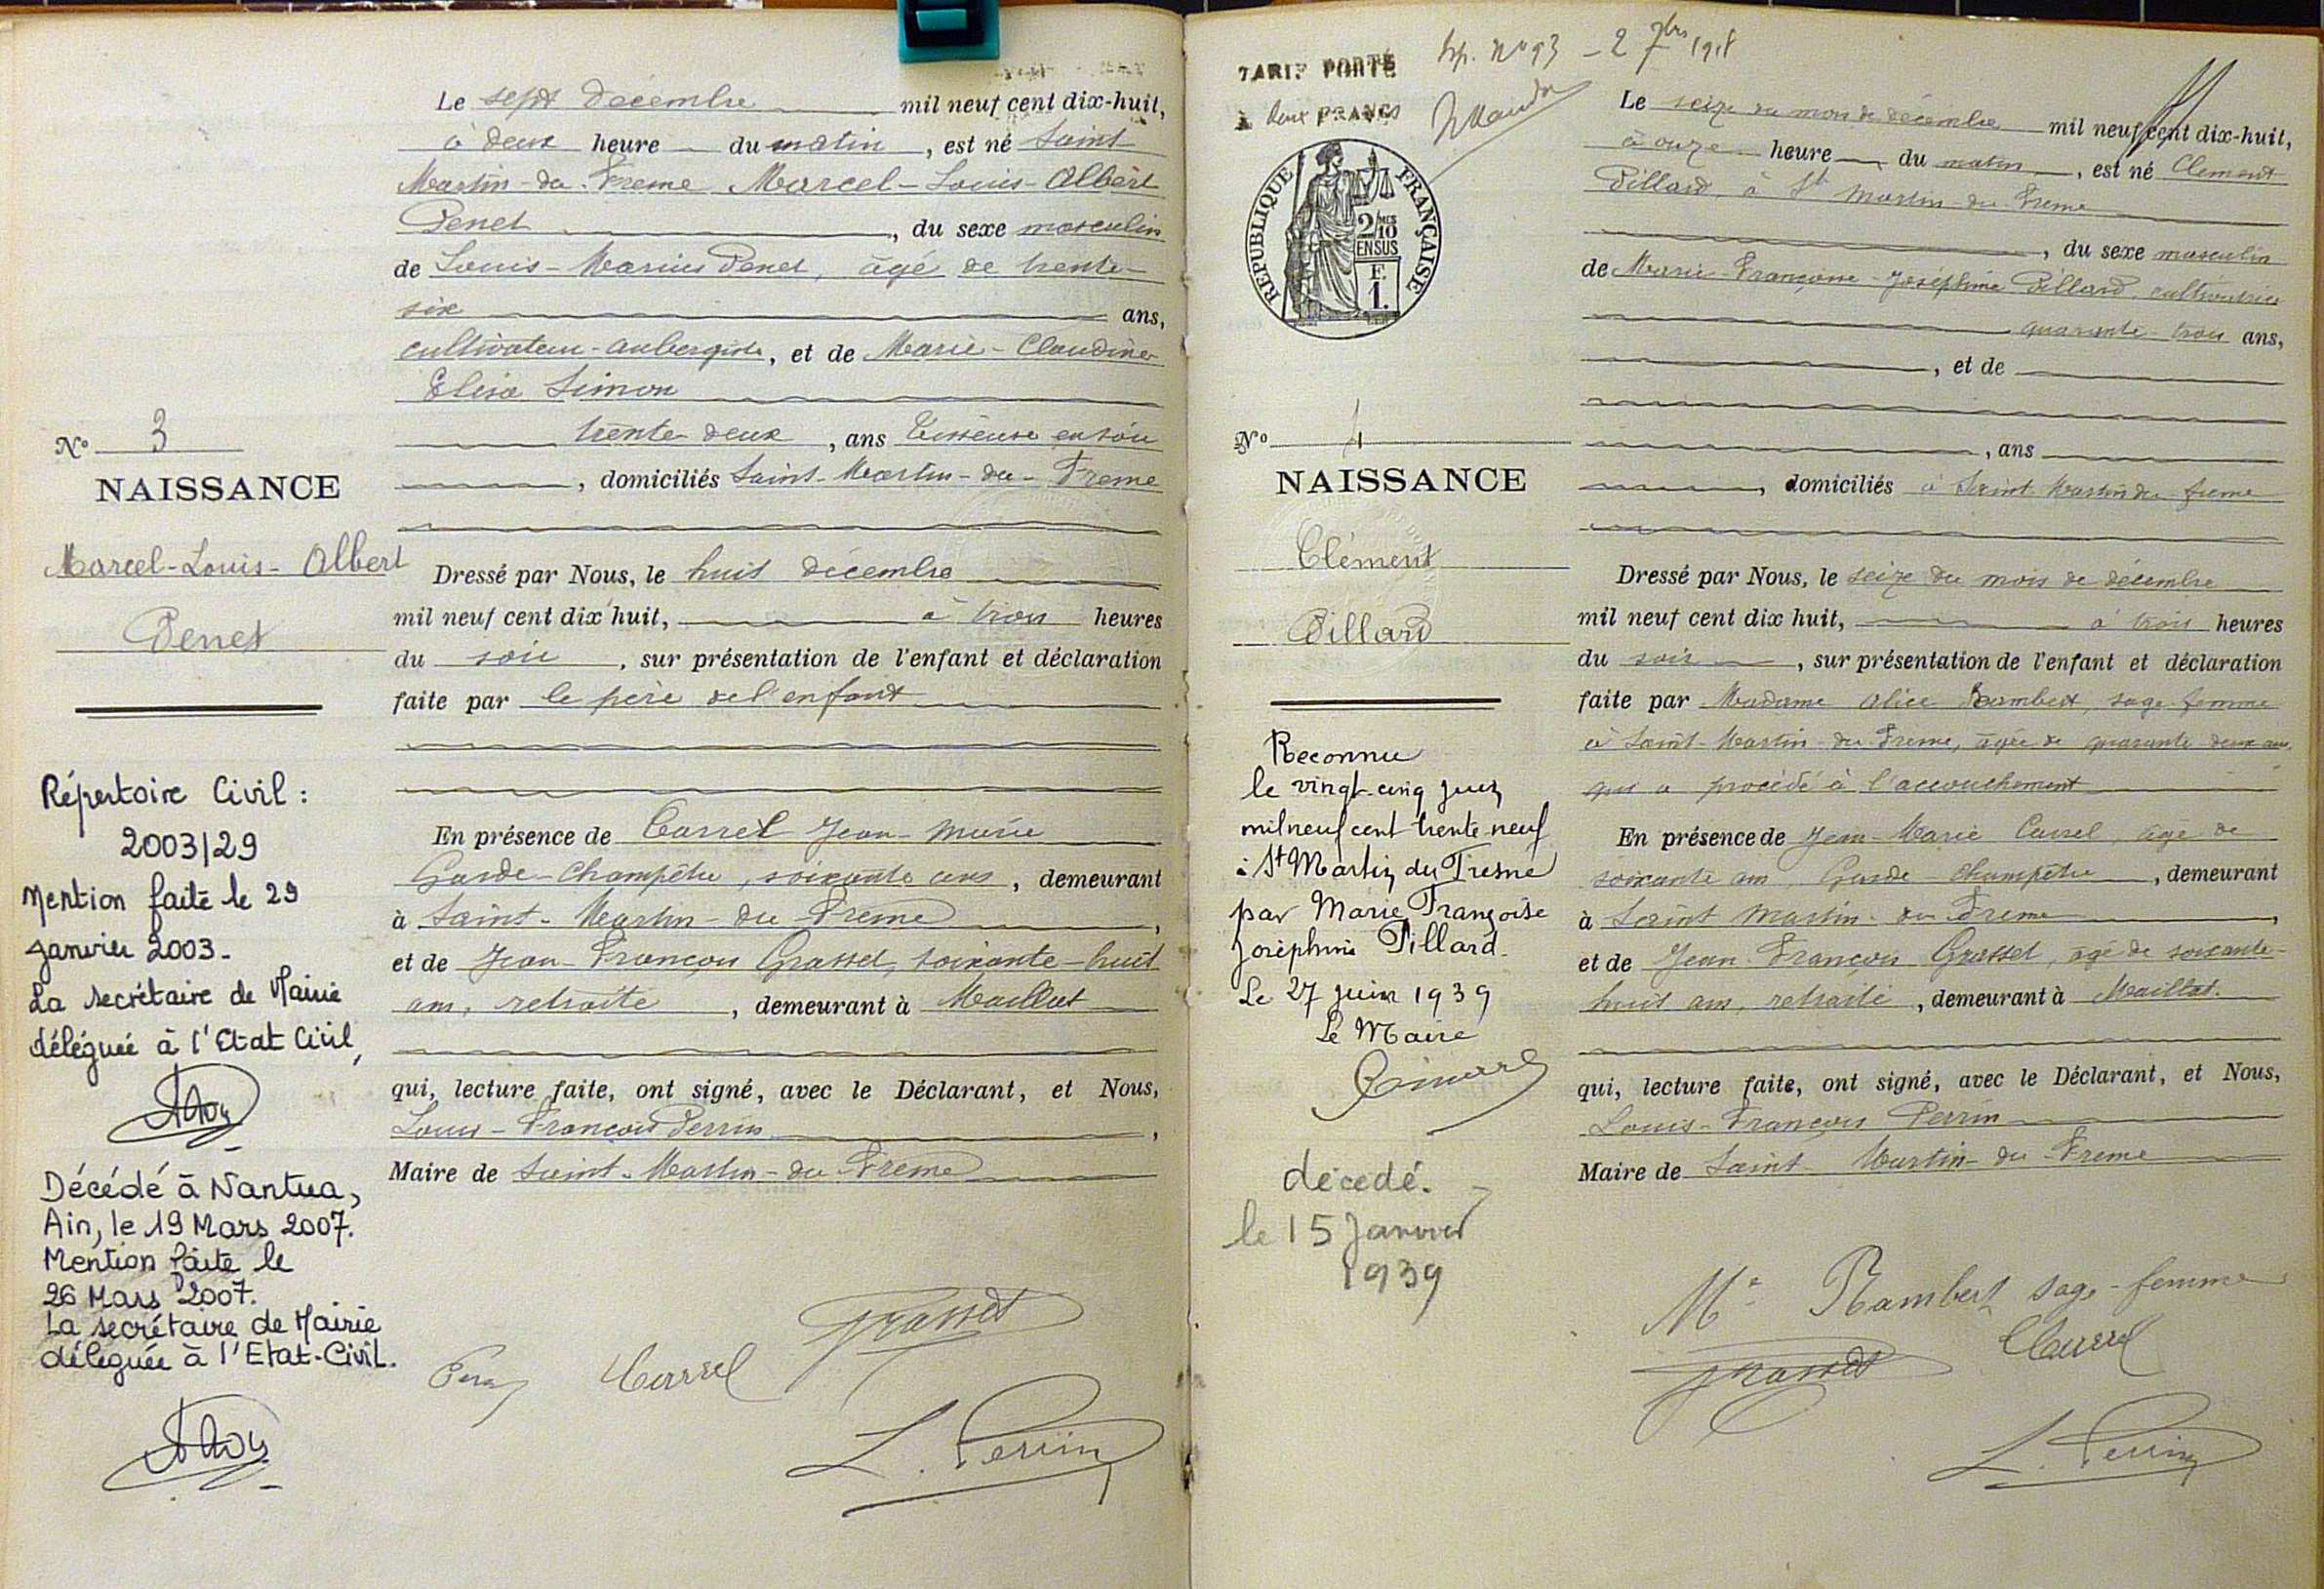 Le sept décembre mil neuf cent dix-huit,
à deux heure du matin, est né Saint
Martin-du-Freme Marcel-Louis-Albert
Penet, du sexe masculin
de Louis-Marius Penet, âgé de trente-
six ans,
cultivateur-aubergiste, et de Marie-Claudine
Elisa Simon
trente deux, ans Tisseuse en soie
, domiciliés Saint-Martin-du-Freme
N° 3
NAISSANCE
Marcel-Louis-Albert
Penet
Dressé par Nous, le huit décembre
mil neuf cent dix huit, à trois heures
du soir, sur présentation de l'enfant et déclaration
faite par le père de l'enfant
En présence de Carrel Jean-Marie
Garde-Champêtre, soixante ans, demeurant
à Saint-Martin-du-Freme,
et de Jean-François Grasset, soixante-huit
ans, retraité, demeurant à Maillat
qui, lecture faite, ont signé, avec le Déclarant, et Nous,
Louis-François Perrin,
Maire de Saint-Martin-du-Freme
Répertoire Civil :
2003/29
Mention faite le 29
Janvier 2003.
La secrétaire de Mairie
déléguée à l'Etat Civil,
Décédé à Nantua,
Ain, le 19 Mars 2007.
Mention faite le
26 Mars 2007.
La secrétaire de Mairie
déléguée à l'Etat-Civil.
Grasset
Carrel
L. Perrin
TARIF PORTÉ
à deux FRANCS
n° 93 - 2 7bre 1918
RÉPUBLIQUE FRANÇAISE
2/10 MES
EN SUS
F.
1.
Le seize du mois de décembre mil neuf cent dix-huit,
à onze heure du matin, est né Clément
Pillard, à St Martin du Freme
, du sexe masculin
de Marie-Françoise-Joséphine Pillard, cultivatrice
quarante-trois ans,
, et de
, ans
, domiciliés à Saint Martin du freme
N° 4
NAISSANCE
Clément
Pillard
Dressé par Nous, le seize du mois de décembre
mil neuf cent dix huit, à trois heures
du soir, sur présentation de l'enfant et déclaration
faite par Madame Alice Rambert, sage femme
à Saint-Martin-du-Freme, âgée de quarante deux ans,
qui a procédé à l'accouchement
En présence de Jean-Marie Carrel, âgé de
soixante ans, Garde-Champêtre, demeurant
à Saint Martin-du-Freme,
et de Jean François Grasset, âgé de soixante-
huit ans, retraité, demeurant à Maillat.
qui, lecture faite, ont signé, avec le Déclarant, et Nous,
Louis-François Perrin
Maire de Saint Martin-du Freme
Reconnu
le vingt-cinq juin
mil neuf cent trente neuf
à St Martin du Fresne
par Marie Françoise
Joséphine Pillard.
Le 27 juin 1939
Le Maire
décédé.
le 15 Janvier
1939
Me Rambert sage-femme
Grasset
Carrel
L. Perrin